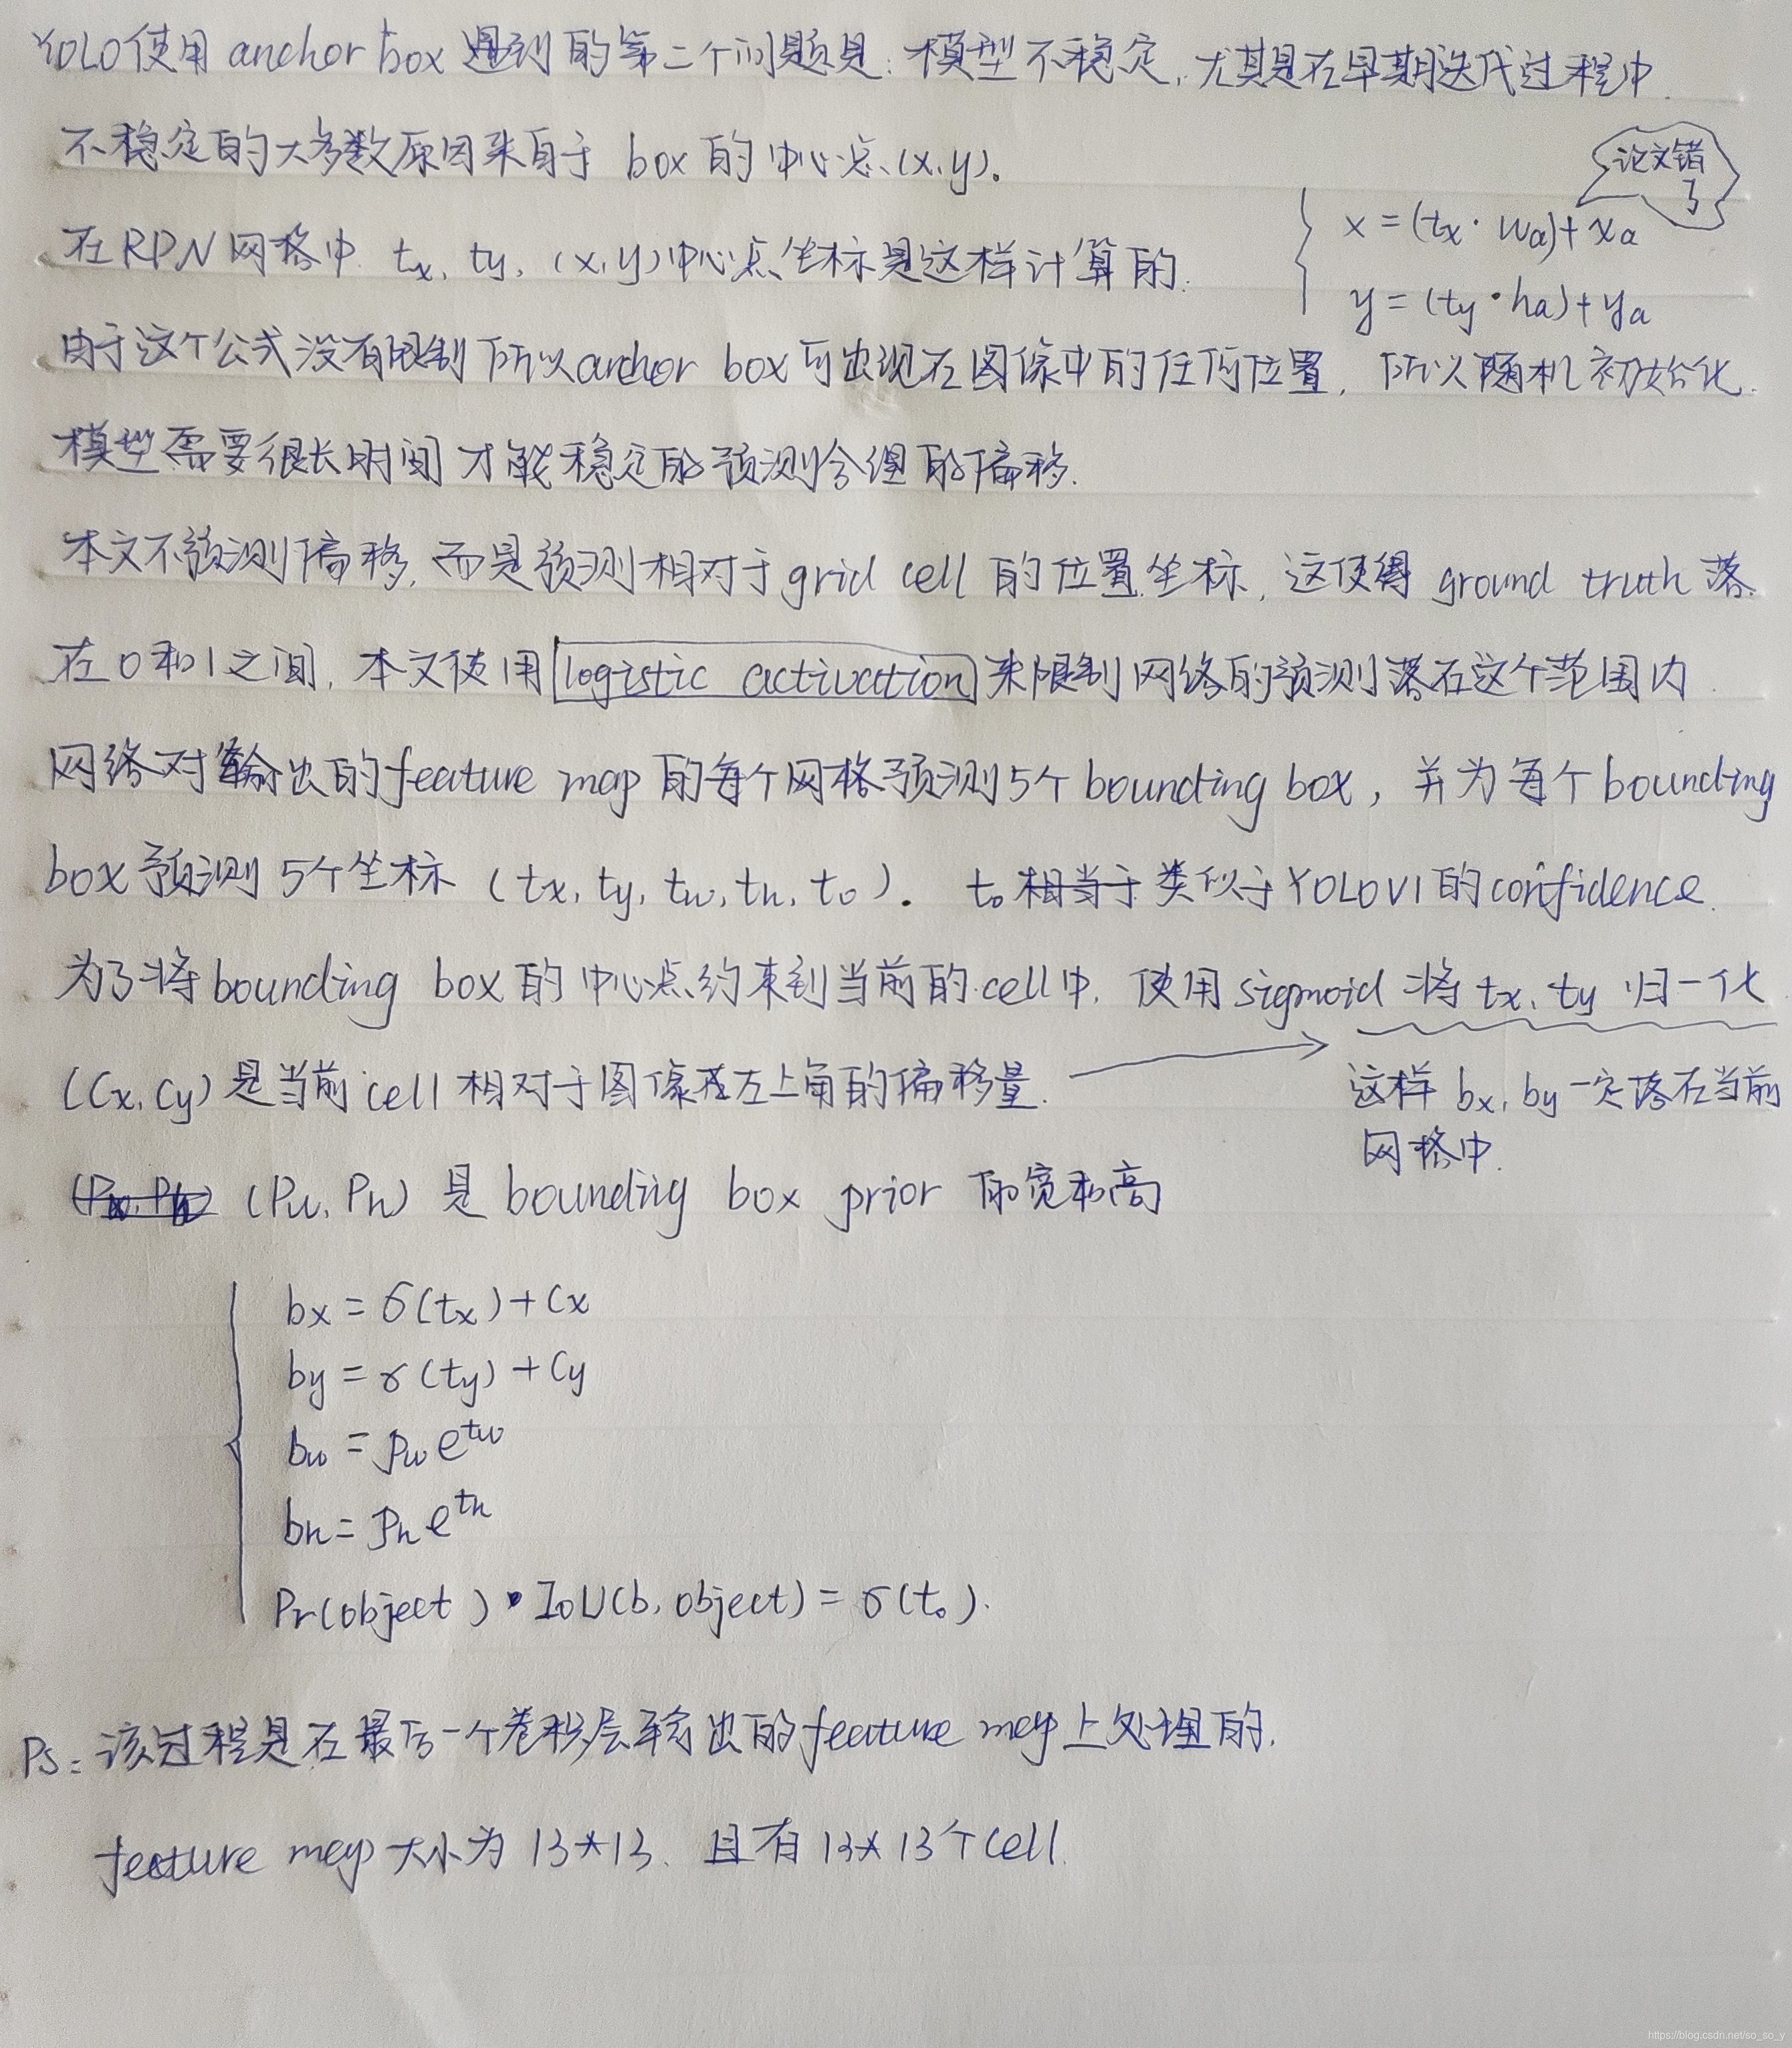 YOLO使用 anchor box 遇到的第二个问题是：模型不稳定，尤其是在早期迭代过程中.
不稳定的大多数原因来自于 box 的中心点(x,y)。
论文错
了
在RPN网格中. tx, ty, (x,y)中心点坐标是这样计算的:
x=(tx·wa)+xa
y=(ty·ha)+ya
由于这个公式没有限制 所以anchor box可出现在图像中的任何位置，所以随机初始化.
模型需要很长时间才能稳定的预测合理的偏移.
本文不预测偏移,而是预测相对于grid cell 的位置坐标, 这使得 ground truth 落
在0和1之间, 本文使用 logistic activation 来限制网络的预测落在这个范围内.
网络对输出的feature map 的每个网格预测5个bounding box，并为每个bounding
box预测 5个坐标 (tx, ty, tw, th, to)． to 相当于 类似于YOLOV1的confidence.
为了将bounding box的中心点约束到当前的cell中, 使用sigmoid 将 tx, ty 归一化
(Cx, Cy)是当前cell相对于图像左上角的偏移量.
这样 bx, by一定落在当前
网格中.
(Pw, Ph) (Pw, Ph) 是 bounding box prior 的宽和高
bx=σ(tx)+Cx
by=σ(ty)+Cy
bw=pw e^tw
bh=ph e^th
Pr(object)·IoU(b, object)=σ(to).
Ps: 该过程是在最后一个卷积层输出的feature map上处理的.
feature map大小为 13*13. 且有13*13个cell.
https://blog.csdn.net/so_so_y